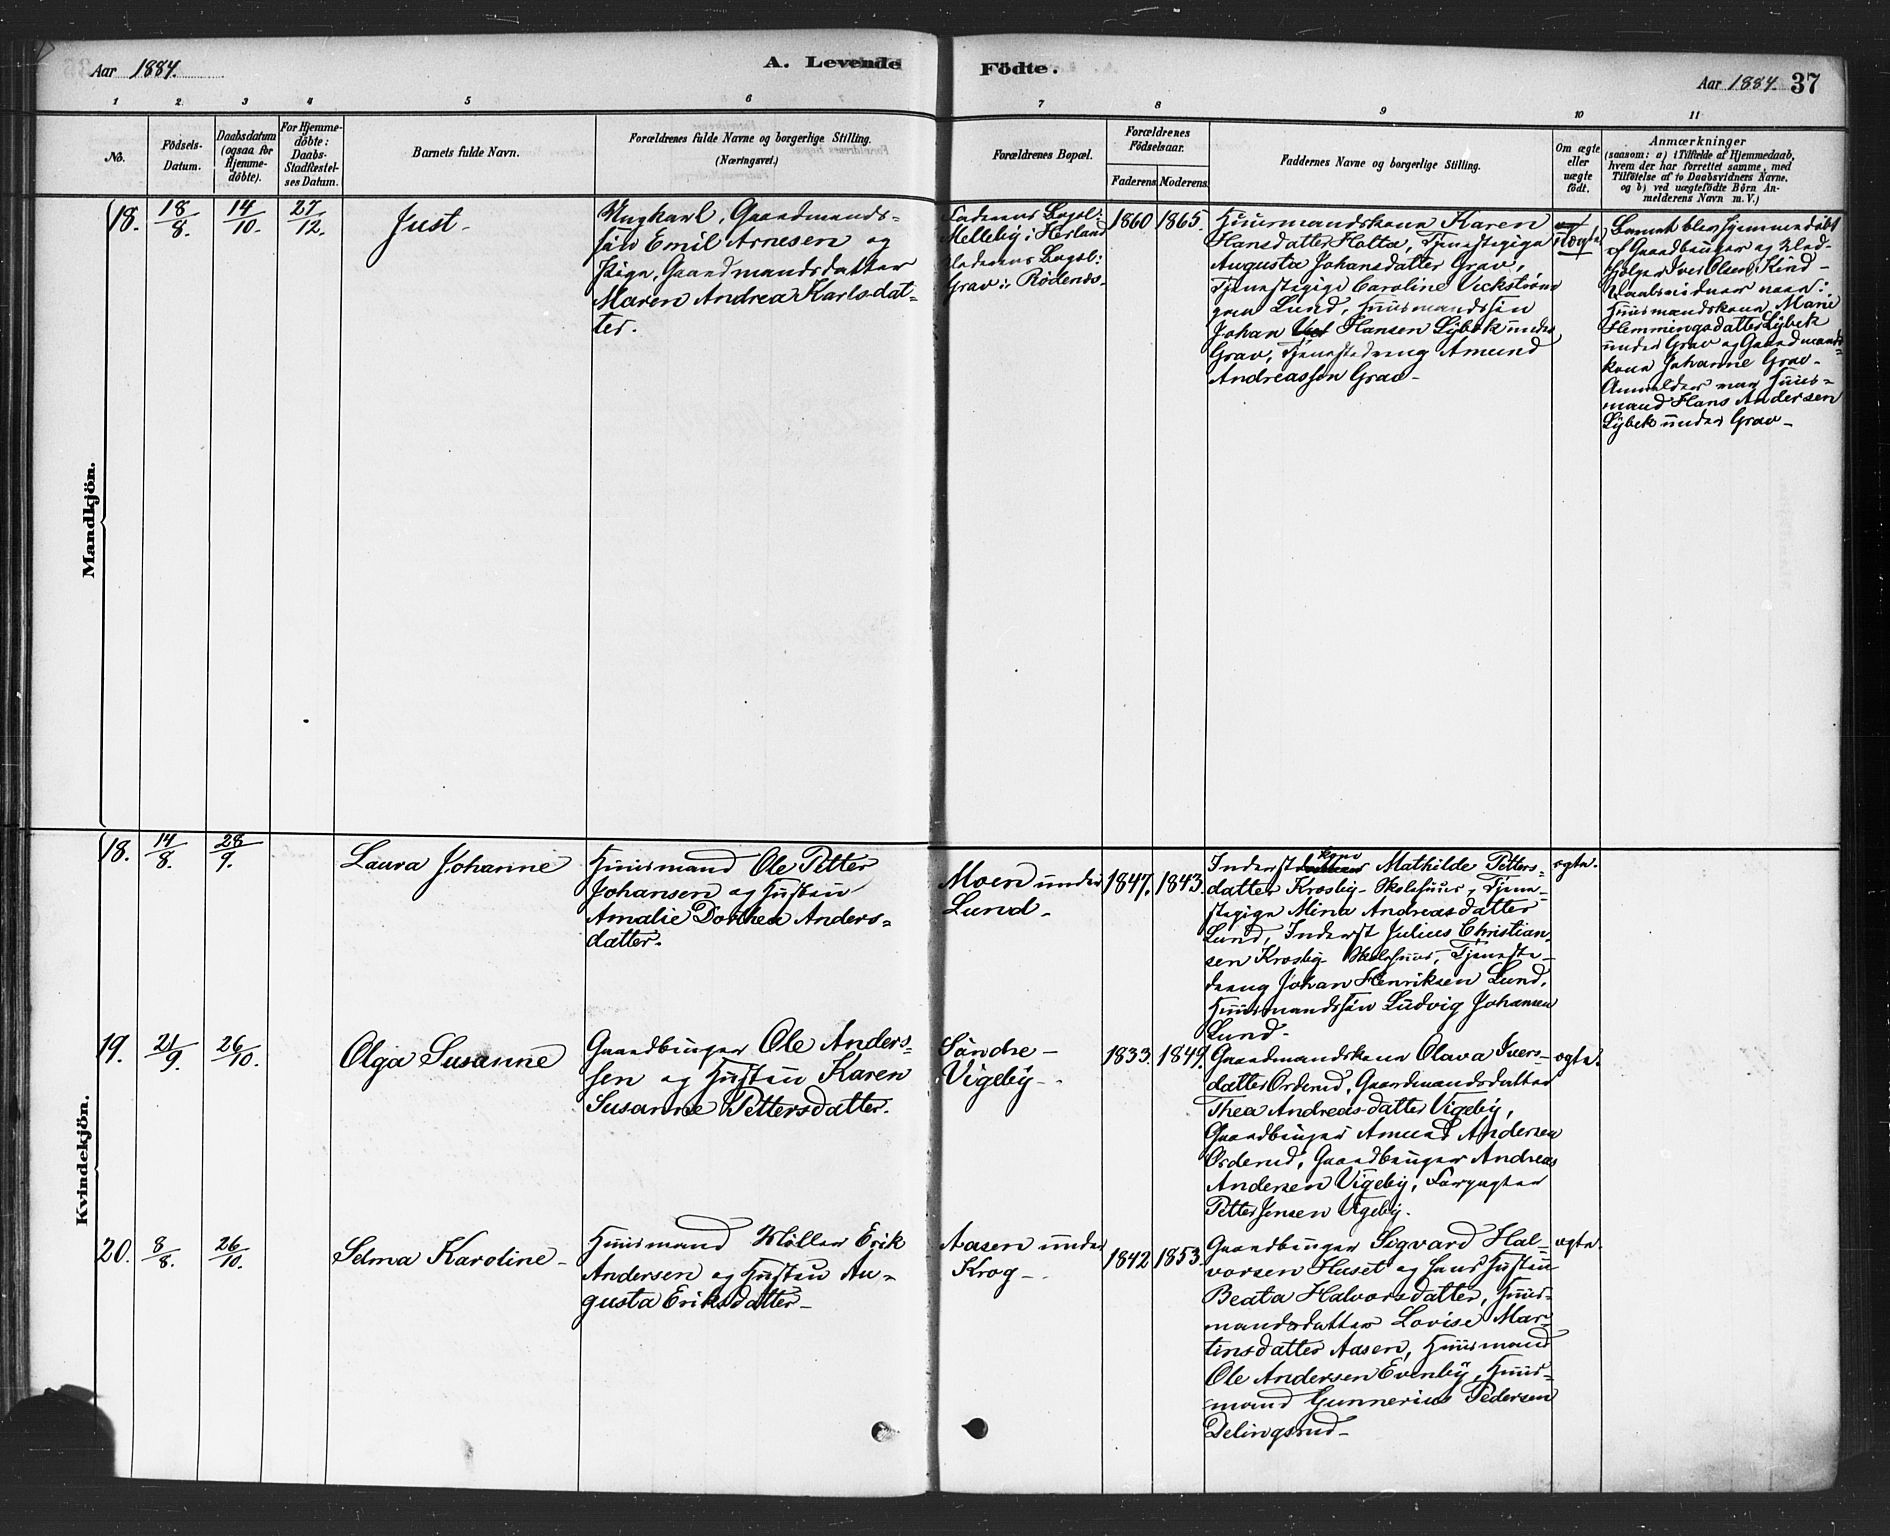 Aar 1884.
A. Levende
Födte.
Aar 1884. 37
1 2 3 4 5 6 7 8 9 10 11
No.
Födsels-
Datum.
Daabsdatum
(ogsaa for
Hjemme-
döbte).
For Hjemme-
döbte:
Daabs-
Stadfæstel-
ses Datum.
Barnets fulde Navn.
Forældrenes fulde Navne og borgerlige Stilling.
(Næringsvei.)
Forældrenes Bopæl.
Forældrenes
Födselsaar.
Faderens. Moderens.
Faddernes Navne og borgerlige Stilling.
Om ægte
eller
uægte
födt.
Anmærkninger
(saasom: a) i Tilfælde af Hjemmedaab,
hvem der har forrettet samme, med
Tilföielse af to Daabsvidners Navne,
og b) ved uægtefödte Börn An-
melderens Navn m. V.)
Mandkjön.
18. 18/8. 14/10. 27/12.
Just-
Ungkarl, Gaardmands-
søn Emil Arnesen og
Pige, Gaardmandsdatter
Maren Andrea Karlsdat-
ter.
Faderens Bopæl:
Melleby i Herland
Moderens Bopæl:
Grav i Rödenes-
1860 1865.
Huusmandskone Karen
Hansdatter Holta, Tjenestepige
Augusta Johansdatter Grav,
Tjenestepige Caroline Veckström
Lund, Huusmandssøn
Johan Hansen Lybek under
Grav, Tjenestedreng Amund
Andreassen Grav-
uægte
Barnet blev hjemmedöbt
af Gaardbruger og Kirke-
sanger Iver Olsen Kind-
Daabsvidner vare:
Huusmandskone Marie
Flemmingsdatter Lybek
under Grav og Gaardmands-
kone Johanne Grav-
Anmelder var Huus-
mand Hans Andersen
Lybek under Grav-
Kvindekjön.
18. 14/8. 28/9.
Laura Johanne
Huusmand Ole Petter
Johansen og Hustru
Amalie Dorthea Anders-
datter.
Moen under
Lund-
1847. 1843.
Inderstkone Mathilde Petters-
datter Krosby-Skolehuus, Tjene-
stepige Mina Andreasdatter
Lund, Inderst Julius Christian-
sen Krosby-Skolehuus, Tjeneste-
dreng Johan Henriksen Lund,
Huusmandssøn Ludvig Johansen
Lund-
ægte.
19. 21/9. 26/10.
Olga Susanne
Gaardbruger Ole Anders-
sen og Hustru Karen
Susanne Pettersdatter.
Søndre-
Vigeby-
1833. 1849.
Gaardmandskone Olava Ivers-
datter Orderud, Gaardmandsdatter
Thea Andreasdatter Vigeby,
Gaardbruger Amund Andersen
Orderud, Gaardbruger Andreas
Andersen Vigeby, Forpagter
Petter Jensen Vigeby.
ægte.
20. 8/8. 26/10.
Selma Karoline-
Huusmand Møller Erik
Andersen og Hustru Au-
gusta Eriksdatter-
Aasen under
Krog-
1842 1853.
Gaardbruger Sigvard Hal-
vorsen Huset og hans Hustru
Beata Halvorsdatter, Huus-
mandsdatter Lovise Mar-
tinsdatter Aasen, Huusmand
Ole Andersen Evenby, Huus-
mand Gunnerius Pedersen
Delingsrud-
ægte.